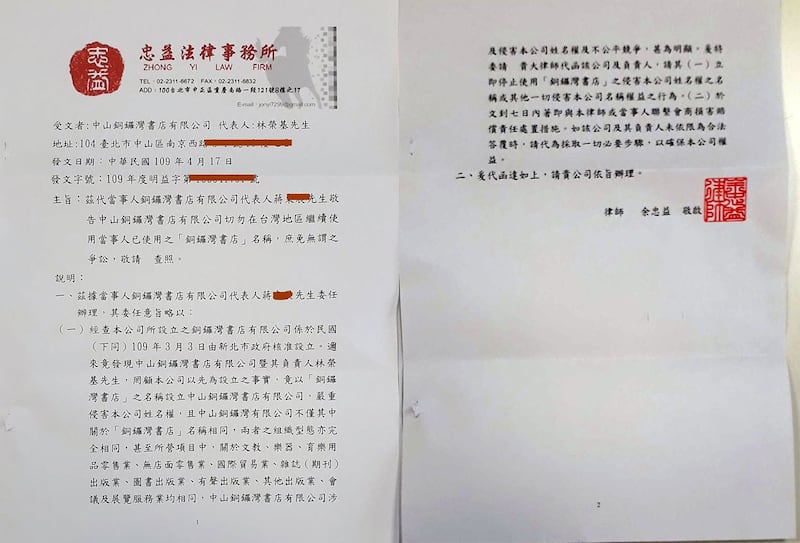 忠益
忠益法律事務所
ZHONG YI LAW FIRM
TEL：02-2311-6672 FAX：02-2311-6832
ADD：100台北市中正區重慶南路一段121號8樓之17
E-mail：jony7298@gmail.com
受文者:中山銅鑼灣書店有限公司 代表人:林榮基先生
地址:104臺北市中山區南京西路
發文日期：中華民國109年4月17日
發文字號：109年度明益字第 號
主旨：茲代當事人銅鑼灣書店有限公司代表人蔣 先生敬
告中山銅鑼灣書店有限公司切勿在台灣地區繼續使
用當事人已使用之「銅鑼灣書店」名稱，庶免無謂之
爭訟，敬請 查照。
說明：
一、茲據當事人銅鑼灣書店有限公司代表人蔣 先生委任
辦理，其委任意旨略以：
（一）經查本公司所設立之銅鑼灣書店有限公司係於民國
（下同）109年3月3日由新北市政府核准設立。邇
來竟發現中山銅鑼灣書店有限公司暨其負責人林榮
基先生，罔顧本公司以先為設立之事實，竟以「銅鑼
灣書店」之名稱設立中山銅鑼灣書店有限公司，嚴重
侵害本公司姓名權，且中山銅鑼灣有限公司不僅其中
關於「銅鑼灣書店」名稱相同，兩者之組織型態亦完
全相同，甚至所營項目中，關於文教、樂器、育樂用
品零售業、無店面零售業、國際貿易業、雜誌(期刊)
出版業、圖書出版業、有聲出版業、其他出版業、會
議及展覽服務業均相同，中山銅鑼灣書店有限公司涉
1
及侵害本公司姓名權及不公平競爭，甚為明顯。爰特
委請 貴大律師代函該公司及負責人，請其（一）立
即停止使用「銅鑼灣書店」之侵害本公司姓名權之名
稱或其他一切侵害本公司名稱權益之行為。（二）於
文到七日內著即與本律師或當事人聯繫會商損害賠
償責任處置措施。如該公司及其負責人未依限為合法
答覆時，請代為採取一切必要步驟，以確保本公司權
益。
二、爰代函達如上，請貴公司依旨辦理。
律師 余忠益 敬啟
2